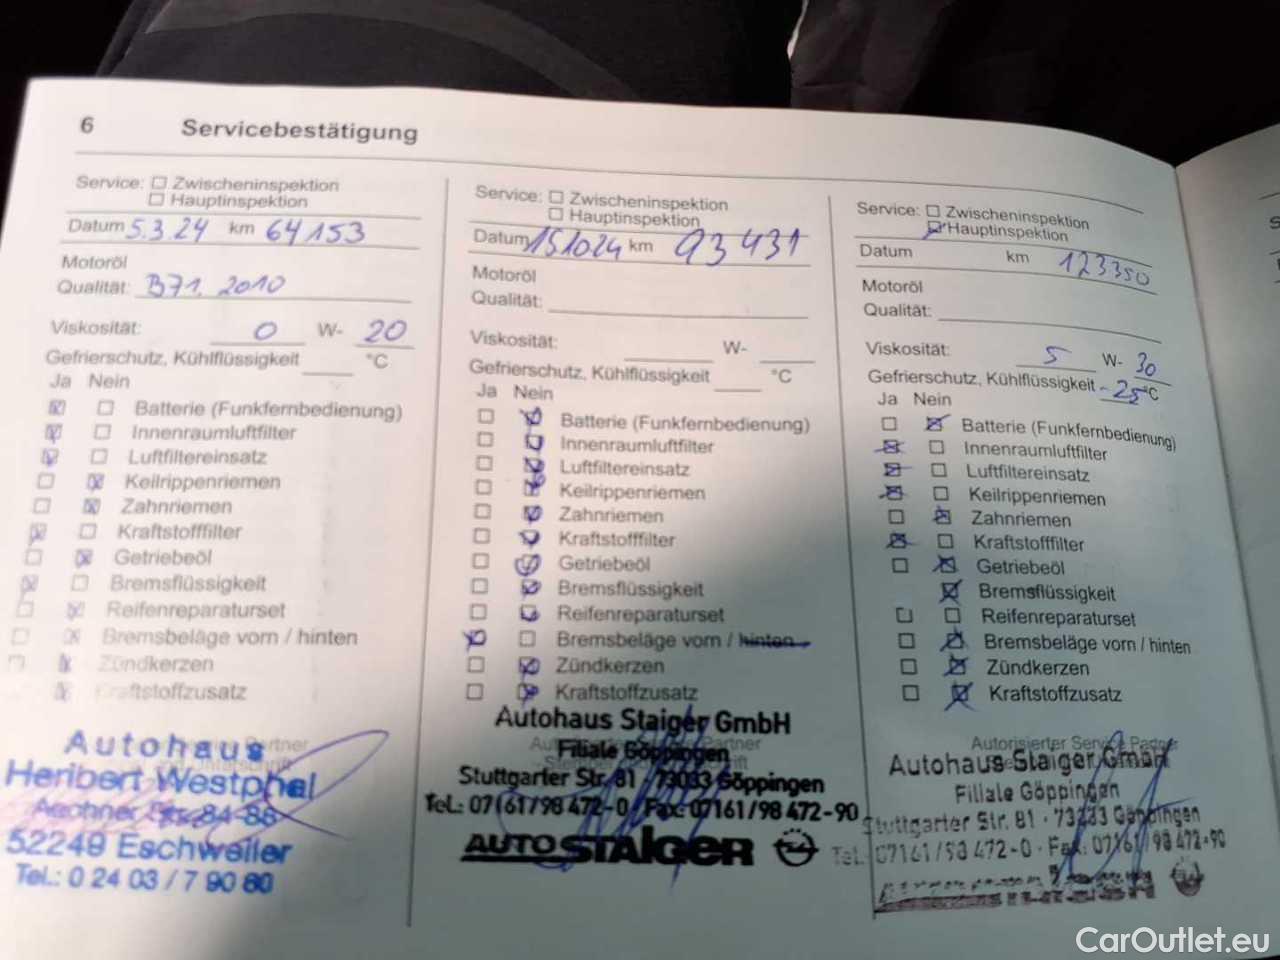 6 Servicebestätigung
Service: Zwischeninspektion
Hauptinspektion
Datum 5.3.24 km 64153
Motoröl
Qualität: B71. 2010
Viskosität: 0 W- 20
Gefrierschutz, Kühlflüssigkeit °C
Ja Nein
Batterie (Funkfernbedienung)
Innenraumluftfilter
Luftfiltereinsatz
Keilrippenriemen
Zahnriemen
Kraftstofffilter
Getriebeöl
Bremsflüssigkeit
Reifenreparaturset
Bremsbeläge vorn / hinten
Zündkerzen
Kraftstoffzusatz
Partner
Autohaus
Heribert Westphal
Aachner Str. 84-86
52249 Eschweiler
Tel.: 0 24 03 / 7 90 80
Service: Zwischeninspektion
Hauptinspektion
Datum 151024 km 93431
Motoröl
Qualität:
Viskosität: W-
Gefrierschutz, Kühlflüssigkeit °C
Ja Nein
Batterie (Funkfernbedienung)
Innenraumluftfilter
Luftfiltereinsatz
Keilrippenriemen
Zahnriemen
Kraftstofffilter
Getriebeöl
Bremsflüssigkeit
Reifenreparaturset
Bremsbeläge vorn / hinten
Zündkerzen
Kraftstoffzusatz
Partner
Autohaus Staiger GmbH
Filiale Göppingen
Stuttgarter Str. 81 · 73033 Göppingen
Tel.: 07161/98 472-0 · Fax: 07161/98 472-90
AUTO STAIGER
Service: Zwischeninspektion
Hauptinspektion
Datum km 123350
Motoröl
Qualität:
Viskosität: 5 W- 30
Gefrierschutz, Kühlflüssigkeit -25 °C
Ja Nein
Batterie (Funkfernbedienung)
Innenraumluftfilter
Luftfiltereinsatz
Keilrippenriemen
Zahnriemen
Kraftstofffilter
Getriebeöl
Bremsflüssigkeit
Reifenreparaturset
Bremsbeläge vorn / hinten
Zündkerzen
Kraftstoffzusatz
Autorisierter Service Partner
Autohaus Staiger GmbH
Filiale Göppingen
Stuttgarter Str. 81 · 73033 Göppingen
Tel.: 07161/98 472-0 · Fax: 07161/98 472-90
CarOutlet.eu